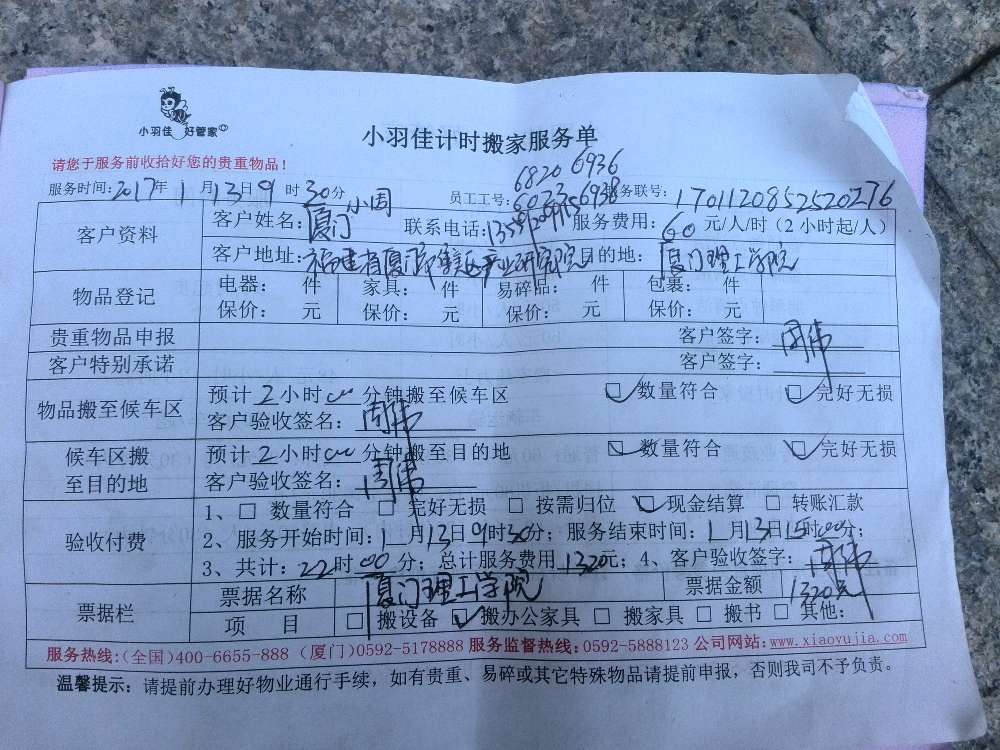 小羽佳 好管家
小羽佳计时搬家服务单
请您于服务前收拾好您的贵重物品！
6820 6936
服务时间:2017年1月13日9时30分 员工工号:6023 6938 服务联号:1701120852520276
客户资料 客户姓名:厦门小周 联系电话: 服务费用:60元/人/时(2小时起/人)
客户地址:福建省厦门市集美区产业研究院 目的地:厦门理工学院
物品登记 电器: 件 家具: 件 易碎品: 件 包裹: 件
保价: 元 保价: 元 保价: 元 保价: 元
贵重物品申报 客户签字:周伟
客户特别承诺 客户签字:
物品搬至候车区 预计2小时00分钟搬至候车区 数量符合 完好无损
客户验收签名:周伟
候车区搬至目的地 预计2小时00分钟搬至目的地 数量符合 完好无损
客户验收签名:周伟
验收付费 1、 数量符合 完好无损 按需归位 现金结算 转账汇款
2、服务开始时间:1月13日9时30分; 服务结束时间:1月13日15时00分;
3、共计:22时00分; 总计服务费用1320元; 4、客户验收签字:周伟
票据栏 票据名称 厦门理工学院 票据金额 1320元
项 目 搬设备 搬办公家具 搬家具 搬书 其他:
服务热线:(全国)400-6655-888 (厦门)0592-5178888 服务监督热线:0592-5888123 公司网站:www.xiaoyujia.com
温馨提示: 请提前办理好物业通行手续，如有贵重、易碎或其它特殊物品请提前申报，否则我司不予负责。